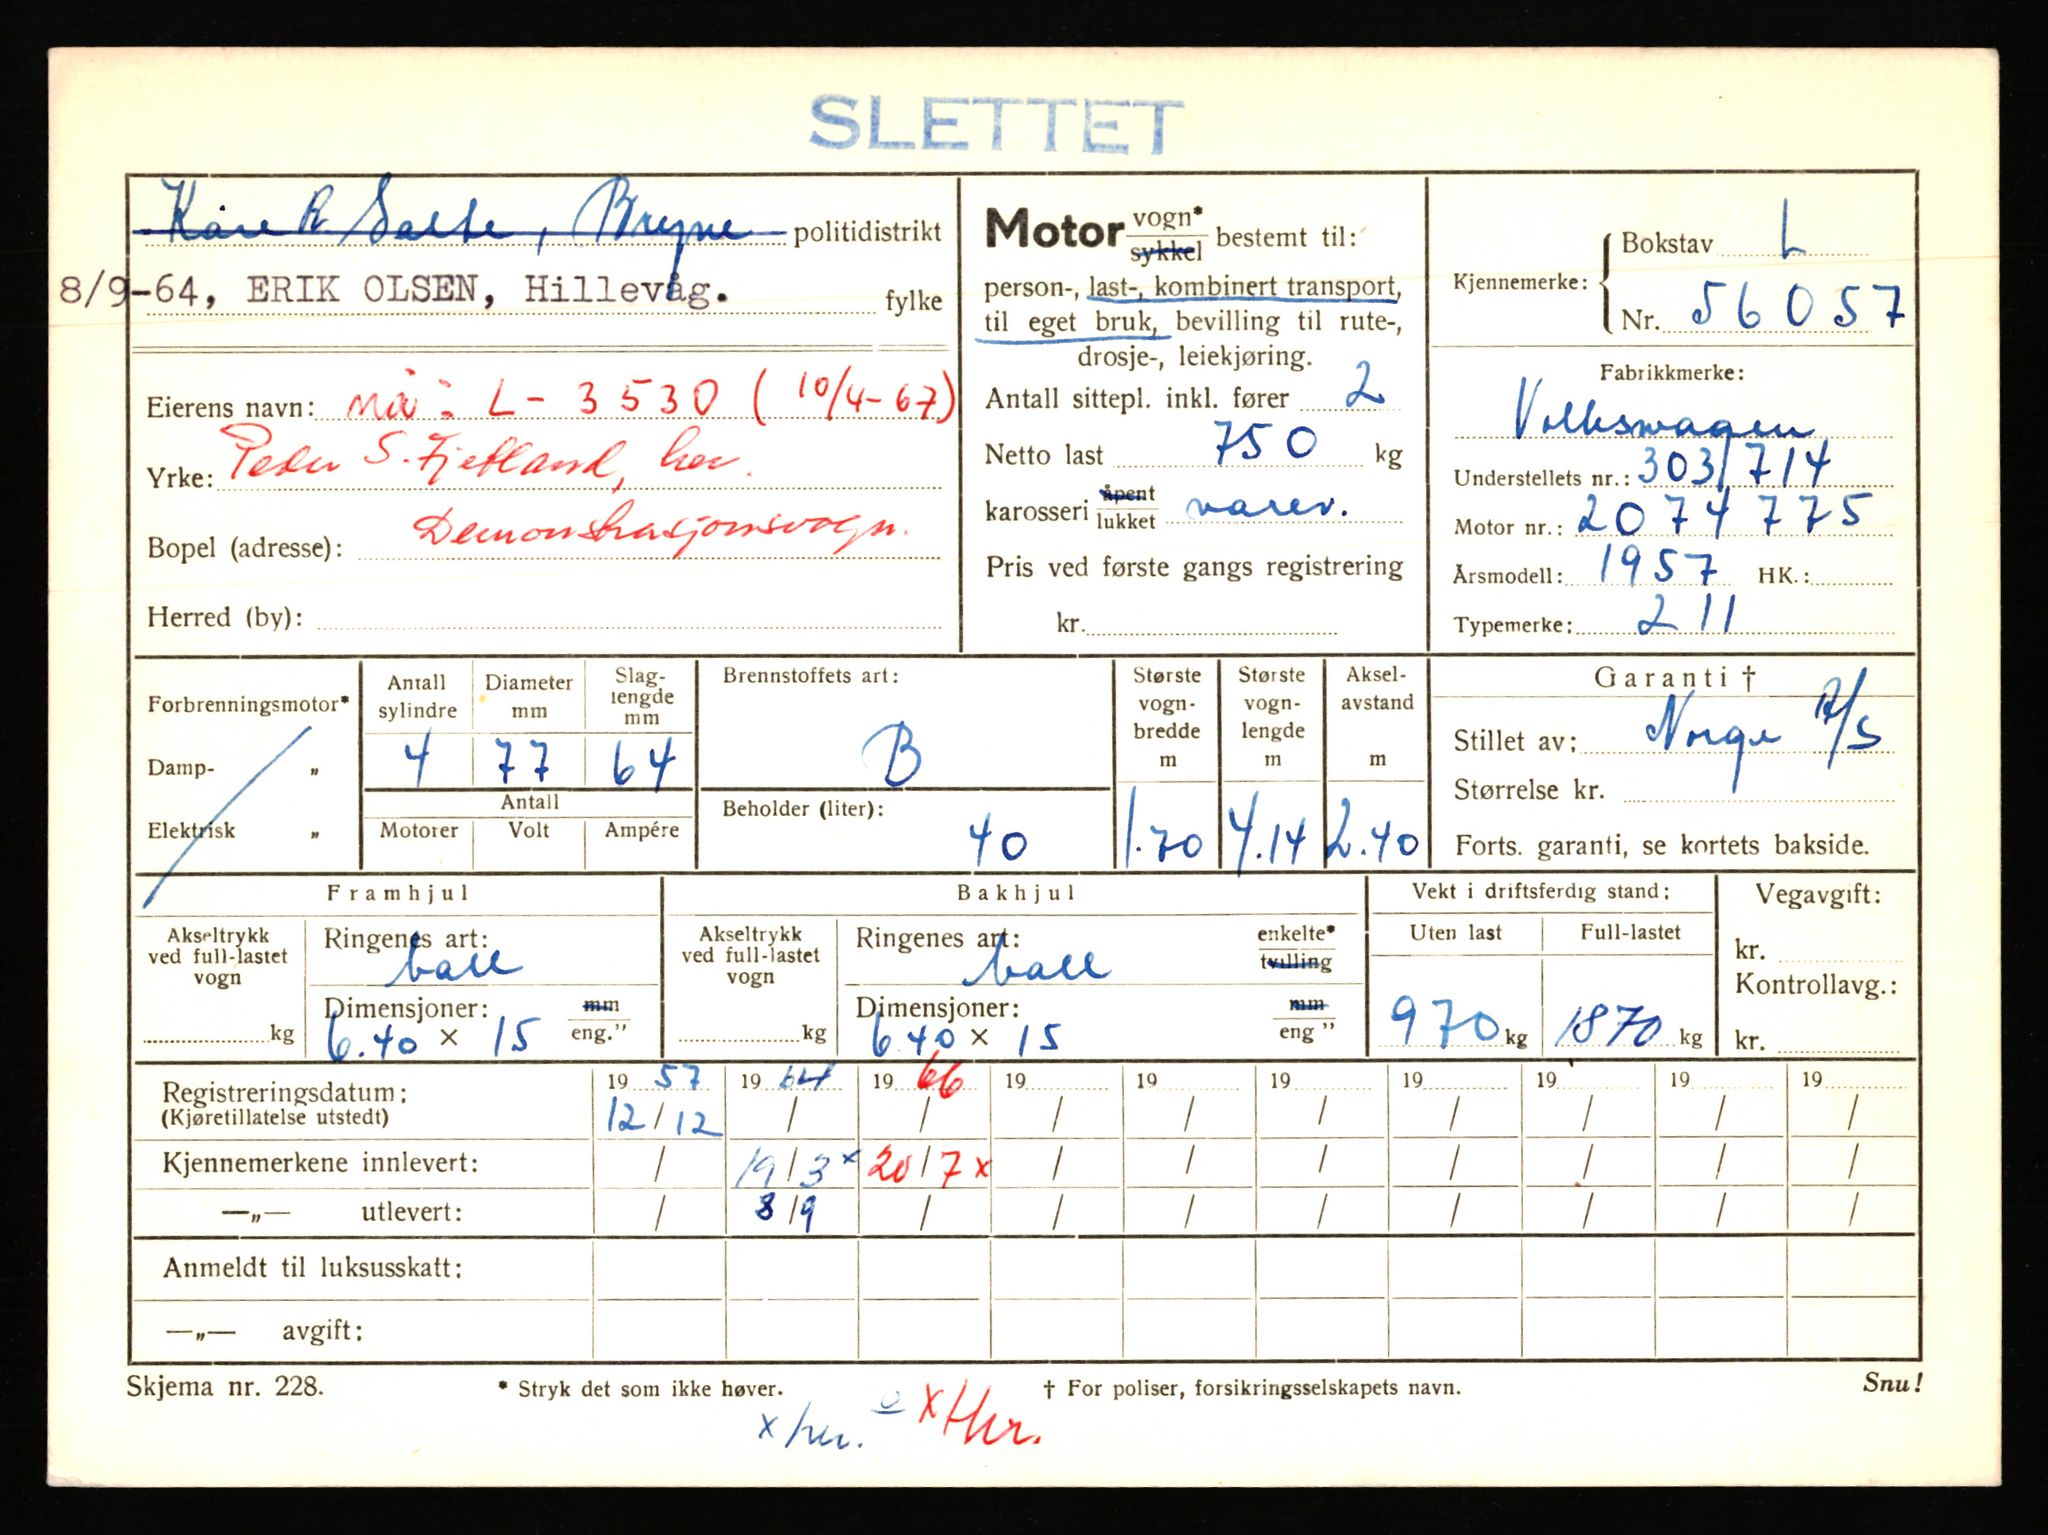 SLETTET
Kåre R Salte, Bryne politidistrikt
8/9-64, ERIK OLSEN, Hillevåg. fylke
Eierens navn: nå: L- 3530 (10/4-67)
Yrke: Peder S. Fjetland, her.
Bopel (adresse): Demonstrasjonsvogn.
Herred (by):
Motor vogn* sykkel bestemt til:
person-, last-, kombinert transport,
til eget bruk, bevilling til rute-,
drosje-, leiekjøring.
Antall sittepl. inkl. fører 2
Netto last 750 kg
karosseri åpent lukket varev.
Pris ved første gangs registrering
kr.
Kjennemerke: Bokstav L
Nr. 56057
Fabrikkmerke:
Volkswagen
Understellets nr.: 303/714
Motor nr.: 2074775
Årsmodell: 1957 HK.:
Typemerke: 211
Forbrenningsmotor*
Damp- „
Elektrisk „
Antall sylindre Diameter mm Slag-lengde mm
4 77 64
Antall
Motorer Volt Ampére
Brennstoffets art:
B
Beholder (liter):
40
Største vogn-bredde m 1.70
Største vogn-lengde m 4.14
Aksel-avstand m 2.40
Garanti †
Stillet av: Norge A/S
Størrelse kr.
Forts. garanti, se kortets bakside.
Framhjul
Akseltrykk ved full-lastet vogn kg
Ringenes art: ball
Dimensjoner: mm
6.40 x 15 eng."
Bakhjul
Akseltrykk ved full-lastet vogn kg
Ringenes art: ball enkelte* tvilling
Dimensjoner: mm
6.40 x 15 eng "
Vekt i driftsferdig stand:
Uten last Full-lastet
970 kg 1870 kg
Vegavgift:
kr.
Kontrollavg.:
kr.
Registreringsdatum: 19 57 19 64 19 66 19 19 19 19 19 19 19
(Kjøretillatelse utstedt) 12/12 / / / / / / / / /
Kjennemerkene innlevert: / 19/3 x 20/7 x / / / / / / /
—„— utlevert: / 8/9 / / / / / / / /
Anmeldt til luksusskatt:
—„— avgift:
Skjema nr. 228. * Stryk det som ikke høver. † For poliser, forsikringsselskapets navn. Snu!
x her. x Her.